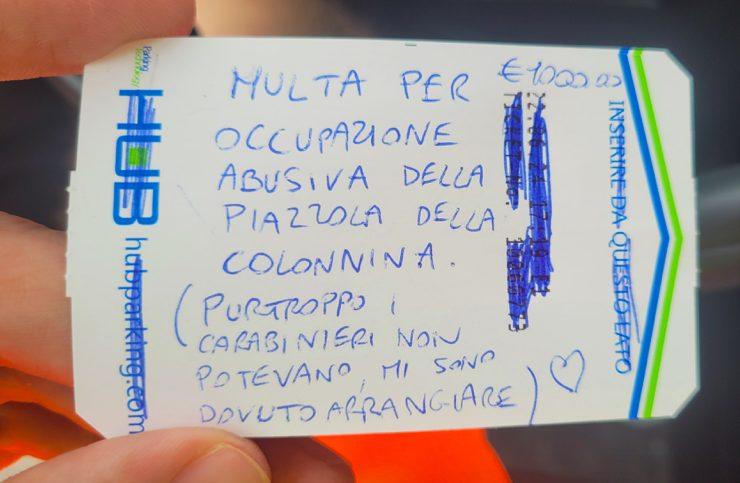 MULTA PER €1000.00
OCCUPAZIONE
ABUSIVA DELLA
PIAZZOLA DELLA
COLONNINA.
(PURTROPPO I
CARABINIERI NON
POTEVANO, MI SONO
DOVUTO ARRANGIARE)
HUB
Parking
hubparking.com
INSERIRE DA QUESTO LATO